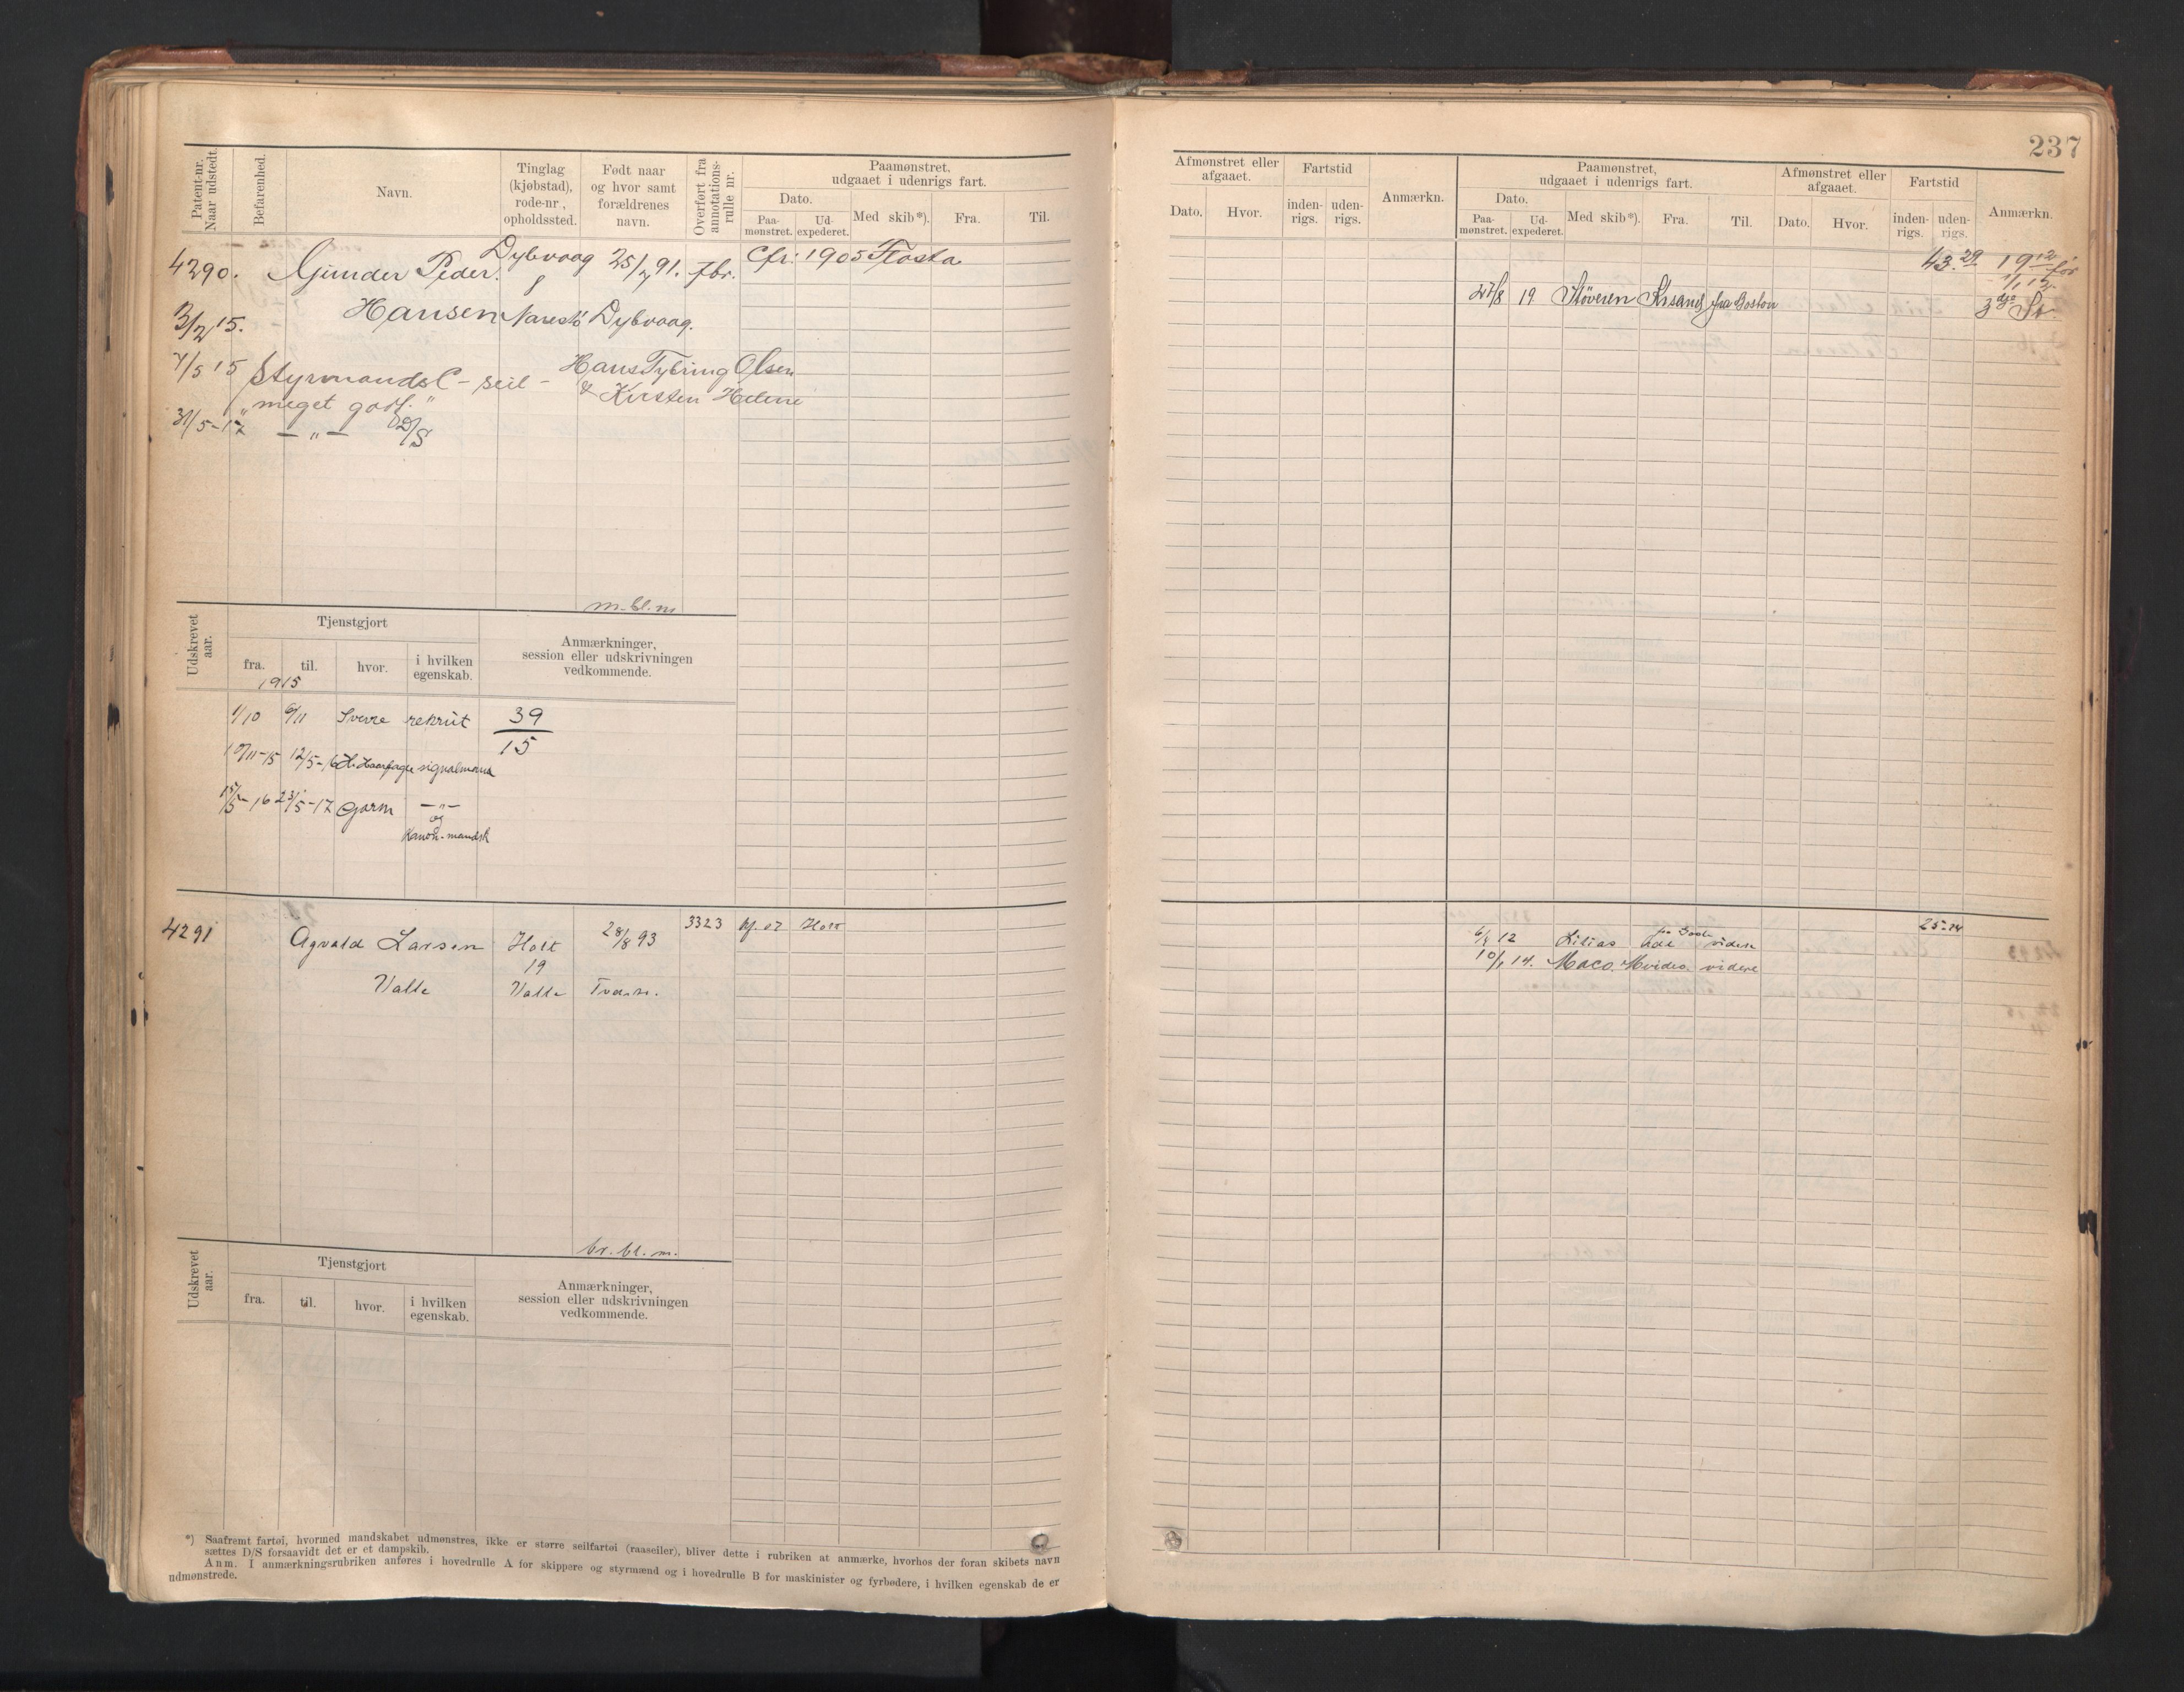 237
Patent-nr. Naar udstedt.
Befarenhed.
Navn.
Tinglag (kjøbstad), rode-nr., opholdssted.
Født naar og hvor samt forældrenes navn.
Overført fra annotations-rulle nr.
Paamønstret, udgaaet i udenrigs fart.
Dato.
Paa-mønstret.
Ud-expederet.
Med skib*).
Fra.
Til.
4290.
Gjunder Peder
Dybvaag
25/7 91.
fbr.
Cfr: 1905 Flosta
3/2 15.
Hansen
Narestø
Dybvaag.
7/5 15
Styrmands C - seil -
Hans Tybring Olsen
"meget godt."
& Kirsten Helene
31/5-17
— " —
D/S
m. bl. m
Udskrevet aar.
Tjenstgjort
fra.
til.
hvor.
i hvilken egenskab.
Anmærkninger, session eller udskrivningen vedkommende.
1915
1/10 6/11 Sverre rekrut
39
15
10/11-15 12/5-16 H. Haarfagre signalmand
15/5-16 23/5-17 Gorm — " —
og
Kanon-mandsk
4291
Agvald Larsen
Holt
28/8 93
3323
Kf. 07 Holt
19
Valle
Valle
Tvedestr.
br. bl. m.
Udskrevet aar.
Tjenstgjort
fra.
til.
hvor.
i hvilken egenskab.
Anmærkninger, session eller udskrivningen vedkommende.
*) Saafremt fartøi, hvormed mandskabet udmønstres, ikke er større seilfartøi (raaseiler), bliver dette i rubriken at anmærke, hvorhos der foran skibets navn
sættes D/S forsaavidt det er et dampskib.
Anm. I anmærkningsrubriken anføres i hovedrulle A for skippere og styrmænd og i hovedrulle B for maskinister og fyrbødere, i hvilken egenskab de er
udmønstrede.
Afmønstret eller afgaaet.
Dato.
Hvor.
Fartstid
inden-rigs.
uden-rigs.
Anmærkn.
Paamønstret, udgaaet i udenrigs fart.
Dato.
Paa-mønstret.
Ud-expederet.
Med skib*).
Fra.
Til.
Afmønstret eller afgaaet.
Dato.
Hvor.
Fartstid
inden-rigs.
uden-rigs.
Anmærkn.
43.29
19 12 før
1/1 13.
27/8 19 Støveren Krsand fra Boston
3die St.
25-14
12 Lilias videre
10/1 14. videre